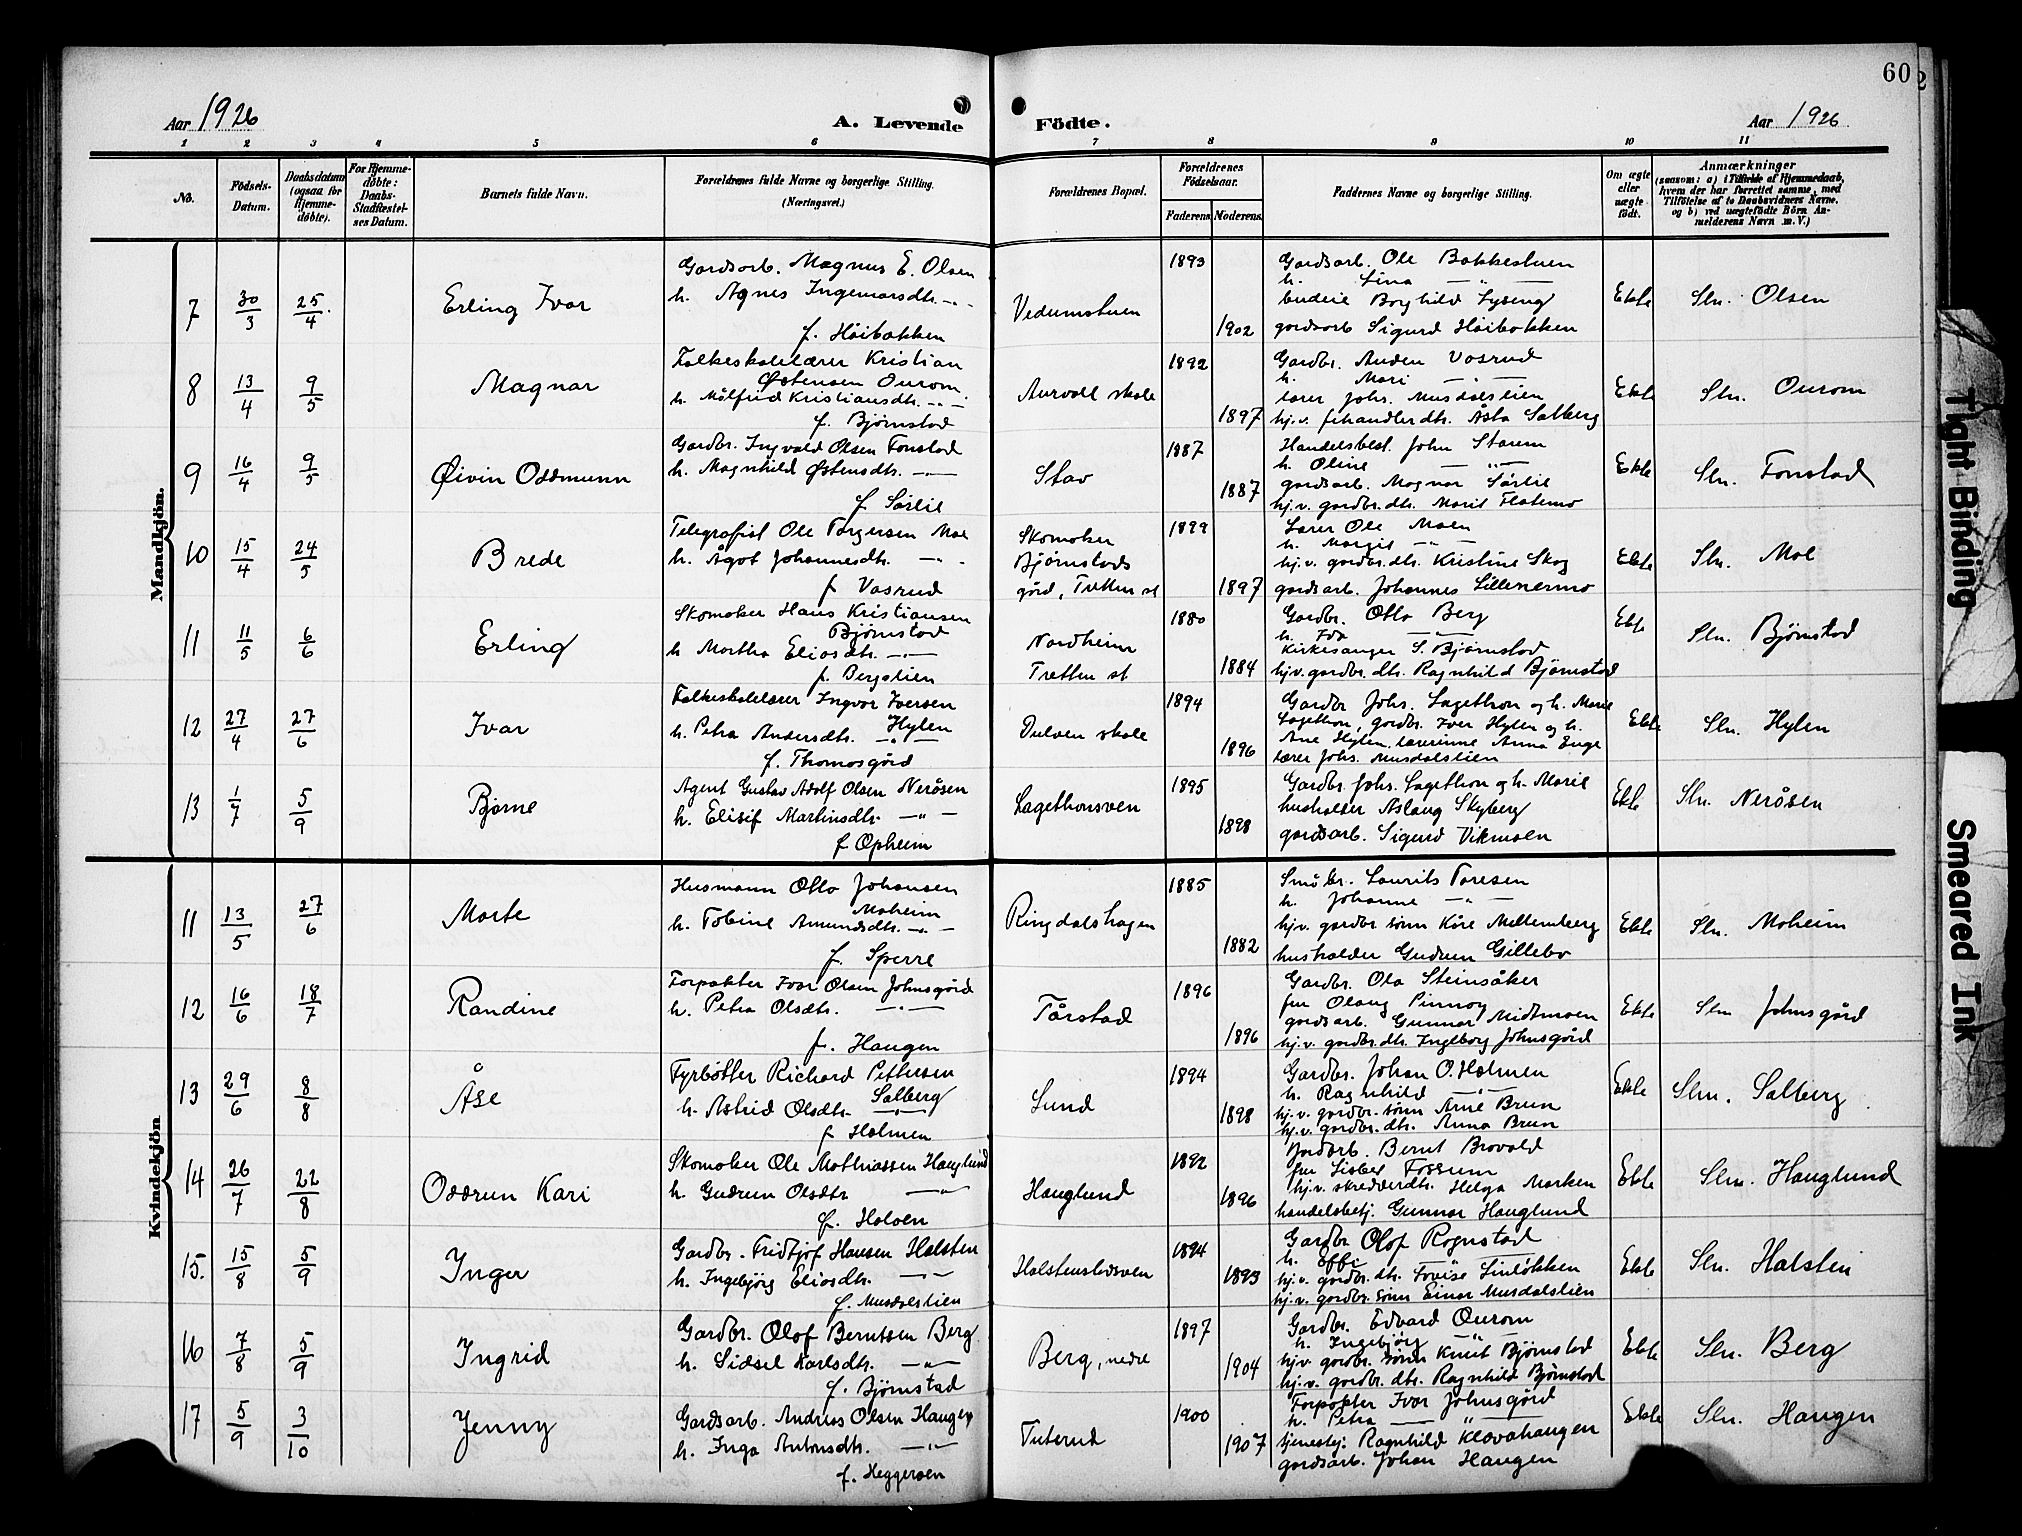 60
2
Aar 1926
A. Levende Födte.
Aar 1926
1 2 3 4 5 6 7 8 9 10 11
No.
Födsels-Datum.
Daabsdatum (ogsaa for Hjemmedøbte).
For Hjemmedøbte: Daabs-Stadfæstelses Datum.
Barnets fulde Navn.
Forældrenes fulde Navne og borgerlige Stilling. (Næringsvei.)
Forældrenes Bopæl.
Forældrenes Födselsaar.
Faderens Moderens
Faddernes Navne og borgerlige Stilling.
Om ægte eller uægte födt.
Anmærkninger
(saasom: a) i Tilfælde af Hjemmedaab, hvem der har forrettet samme, med Tilföielse af to Daabsvidners Navne, og b) ved uægtefödte Börn Anmelderens Navn m. V.)
Mandkjön.
7 30/3 25/4 Erling Ivar
Gardsarb. Magnus E. Olsen
h. Agnes Ingemarsdtr. -"-
f. Høibakken
Vedumstuen
1893 1902
Gardsarb. Ole Bakkestuen
h. Lina -"-
budeie Borghild Lyseng
gardsarb Sigurd Høibakken
Ekte Sln. Olsen
8 13/4 9/5 Magnar
Folkeskolelærer Kristian
Østensen Ourom
h. Målfrid Kristiansdtr. -"-
f. Bjørnstad
Aurvoll skole
1892 1897
Gardbr. Anden Vasrud
h. Mari -"-
lærer Johs. Musdalslien
hj.v. fehandlerdtr. Åsta Salberg
Ekte Sln. Ourom
9 16/4 9/5 Øivin Oddmunn
Gardbr. Ingvald Olsen Fonstad
h. Magnhild Østensdtr. -"-
f. Sørlie
Stav
1887 1887
Handelsbest. John Starem
h. Oline -"-
gardsarb. Magnar Sørlie
hj.v. gardbr.dtr. Marit Flatemo
Ekte Sln. Fonstad
10 15/4 24/5 Brede
Telegrafist Ole Torgersen Moe
h. Ågot Johannesdtr. -"-
f. Vasrud
Skomaker
Bjørnstads
gård, Tretten st
1899 1897
Lærer Ole Moen
h. Margit -"-
hj.v. gardbr.dtr. Kristine Skog
gardsarb. Johannes Lillenermo
Ekte Sln. Moe
11 11/5 6/6 Erling
Skomaker Hans Kristiansen
Bjørnstad
h Martha Eliasdtr. -"-
f. Bergslien
Nordheim
Tretten st
1880 1884
Gardbr. Otto Berg
h. Ida -"-
Kirkesanger S. Bjørnstad
hj.v. gardbr.dtr. Ragnhild Bjørnstad
Ekte Sln. Bjørnstad
12 27/4 27/6 Ivar
Folkeskolelærer Ingvar Iversen
Hylen
h. Petra Andersdtr. -"-
f. Thomasgård
Dulven skole
1894 1896
Gardbr Johs. Lagethon og h. Marie
Lagethon, gardbr. Iver Hylen og h.
Ane Hylen, lærerinne Anna Enge
lærer Johs. Musdalslien
Ekte Sln. Hylen
13 1/7 5/9 Bjarne
Agent Gustav Adolf Olsen Neråsen
h. Elisif Martinsdtr. -"-
f. Opheim
Lagethonsven
1895 1898
Gardbr. Johs. Lagethon og h. Marie
husholder Aslaug Skyberg
gardsarb. Sigurd Vikmoen
Ekte Sln. Neråsen
Kvindekjön
11 13/5 27/6 Marte
Husmann Otto Johansen
Moheim
h. Tobine Amundsdtr. -"-
f. Sperre
Ringdalshagen
1885 1882
Småbr. Laurits Toresen
h. Johanne -"-
hj.v. gardbr sønn Kåre Mellemberg
husholder Gudrun Gillebo
Ekte Sln. Moheim
12 16/6 18/7 Randine
Forpakter Ivar Olsen Johnsgård
h. Petra Olsdtr. -"-
f. Haugen
Tårstad
1896 1896
Gardbr. Ola Steinsåker
fru Olaug Pinnoy
gardsarb. Gunnar Midtmoen
hj.v. gardbr.dtr. Ingeborg Johnsgård
Ekte Sln Johnsgård
13 29/6 8/8 Åse
Fyrbøter Richard Pettersen
Salberg
h. Astrid Olsdtr. -"-
f Holmen
Lund
1894 1898
Gardbr. Johan O. Holmen
h. Ragnhild -"-
hj.v. gardbr. sønn Arne Brun
hj.v. gardbr. dtr. Anna Brun
Ekte Sln. Salberg
14 26/7 22/8 Oddrun Kari
Skomaker Ole Mathiassen Hauglund
h. Gudrun Olsdtr -"-
f. Holoen
Hauglund
1892 1896
Jordarb. Bernt Brovold
fru Lisbet Fossum
hj.v. skredderdtr. Helga Marken
handelsbetj. Gunnar Hauglund
Ekte Sln. Hauglund
15. 15/8 5/9 Inger
Gardbr. Fridtjof Hansen Halsten
h. Ingebjørg Eliasdtr. -"-
f. Musdalslien
Halstenstadsven
1894 1893
Gardbr Olof Rognstad
h. Effi -"-
hj.v. gardbr. dtr. Tovise Linløkken
hj.v. gardbr. sønn Einar Musdalslien
Ekte Sln. Halsten
16 7/8 5/9 Ingrid
Gardbr. Olof Berntsen Berg
h. Sidsel Karlsdtr. -"-
f. Bjørnstad
Berg, nedre
1897 1904
Gardbr. Edvard Ourom
h. Ingebjørg -"-
hj.v. gardbr. sønn Knut Bjørnstad
hj.v. gardbr. dtr. Ragnhild Bjørnstad
Ekte Sln. Berg
17 5/9 3/10 Jenny
Gardsarb. Andreas Olsen Haugen
h. Inga Antonsdtr. -"-
f. Heggeroen
Tuterud
1900 1907
Forpakter Ivar Johnsgård
h. Petra -"-
tjenestepj. Ragnhild Klåvahaugen
gardsarb. Johan Haugen
Ekte Sln. Haugen
Tight Binding
Smeared Ink